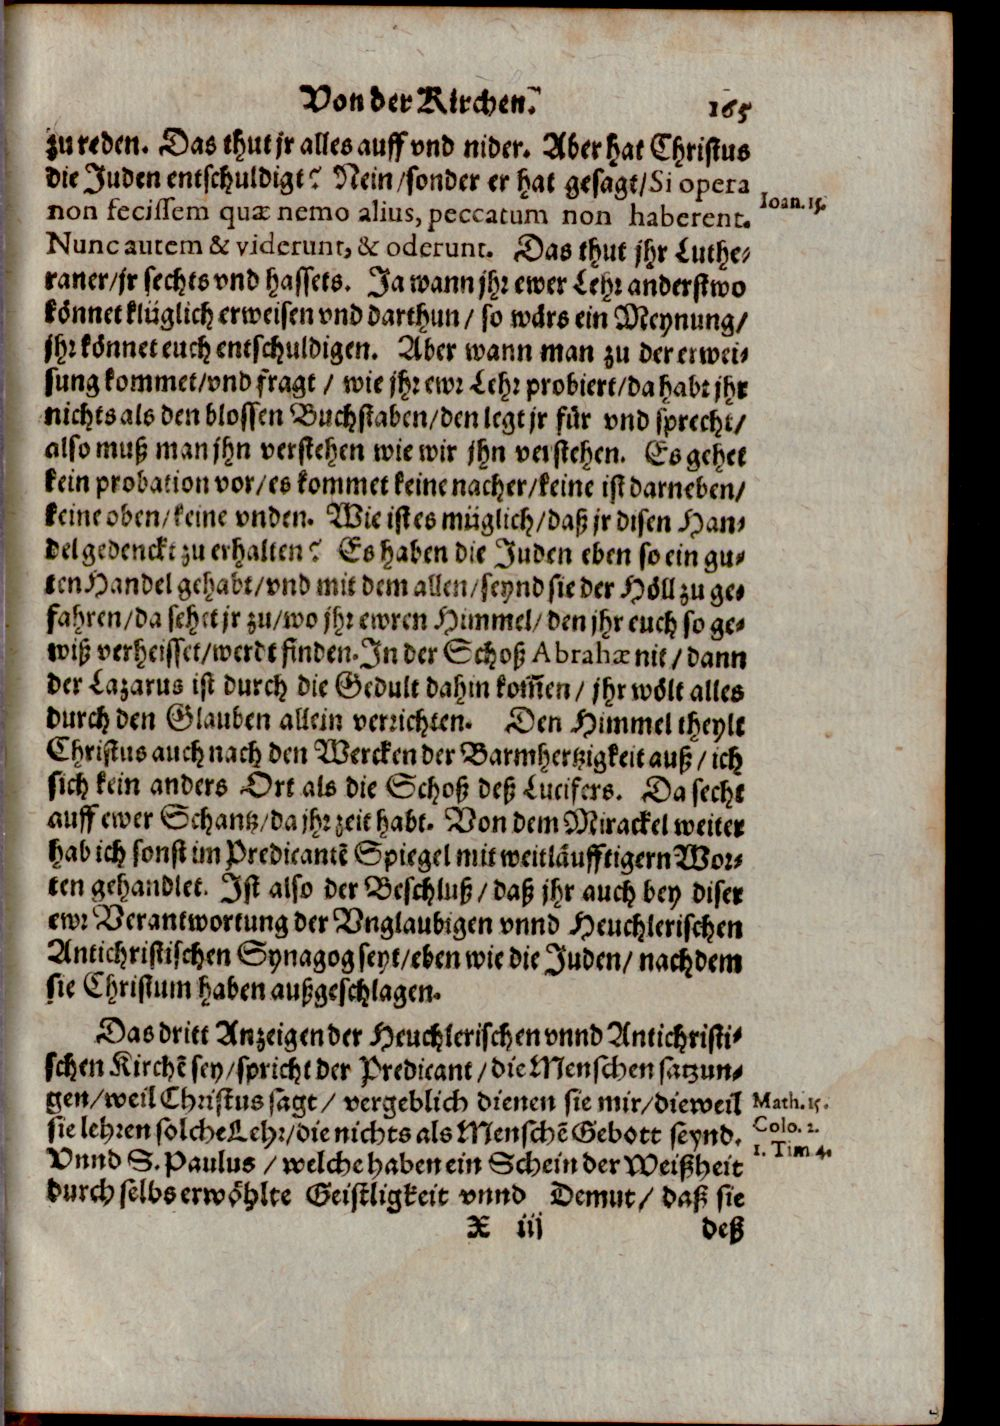 Von der Kirchen. 165
zu reden. Das thut jr alles auff vnd nider. Aber hat Christus
die Juden entschuldigt? Nein/sonder er hat gesagt/Si opera
Ioan. 15.
non fecissem quæ nemo alius, peccatum non haberent.
Nunc autem & viderunt, & oderunt. Das thut jhr Luthe-
raner/jr sechts vnd hassets. Ja wann jhr ewer Lehr anderstwo
könnet klüglich erweisen vnd darthun/ so wärs ein Meynung/
jhr könnet euch entschuldigen. Aber wann man zu der erwei-
sung kommet/vnd fragt / wie jhr ewr Lehr probiert/da habt jhr
nichts als den blossen Buchstaben/den legt jr für vnd sprecht/
also muß man jhn verstehen wie wir jhn verstehen. Es gehet
kein probation vor/es kommet keine nacher/keine ist darneben/
keine oben/keine vnden. Wie ist es müglich/daß jr disen Han-
del gedenckt zu erhalten? Es haben die Juden eben so ein gu-
ten Handel gehabt/vnd mit dem allen/seynd sie der Höll zu ge-
fahren/da sehet jr zu/wo jhr ewren Himmel/ den jhr euch so ge-
wiß verheisset/werdt finden. In der Schoß Abrahæ nit/ dann
der Lazarus ist durch die Gedult dahin kom̃en/ jhr wölt alles
durch den Glauben allein verrichten. Den Himmel theylt
Christus auch nach den Wercken der Barmhertzigkeit auß/ ich
sich kein anders Ort als die Schoß deß Lucifers. Da secht
auff ewer Schantz/da jhr zeit habt. Von dem Mirackel weiter
hab ich sonst im Predicantẽ Spiegel mit weitläufftigern Wor-
ten gehandlet. Ist also der Beschluß/ daß jhr auch bey diser
ewr Verantwortung der Vnglaubigen vnnd Heuchlerischen
Antichristischen Synagog seyt/eben wie die Juden/ nachdem
sie Christum haben außgeschlagen.
Das dritt Anzeigen der Heuchlerischen vnnd Antichristi-
schen Kirchẽ sey/spricht der Predicant/die Menschen satzun-
gen/weil Christus sagt/ vergeblich dienen sie mir/dieweil
Math. 15.
sie lehren solche Lehr/die nichts als Menschẽ Gebott seynd.
Colo. 2.
Vnnd S. Paulus / welche haben ein Schein der Weißheit
1. Tim 4.
durch selbs erwöhlte Geistligkeit vnnd Demut/ daß sie
X iij deß